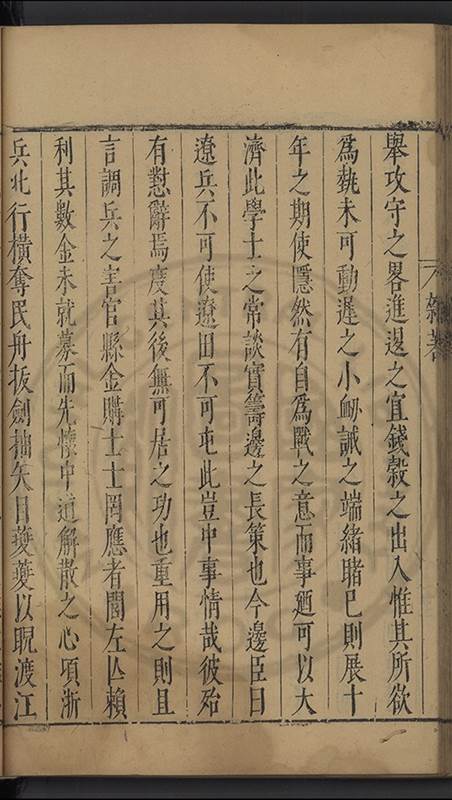 舉攻守之畧進退之宜錢穀之出入惟其所欲
為勢未可動遲之小衂誡之端緒睹巳則展十
年之期使隱然有自為戰之意而事廼可以大
濟此學士之常談實籌邊之長策也今邊臣曰
遼兵不可使遼田不可屯此豈中事情哉彼殆
有懟辭焉度其後無可居之功也重用之則且
言調兵之害官縣金購士士罔應者閭左亾賴
利其數金未就募而先懷中道解散之心項浙
兵北行橫奪民舟拔劍抽矢目夔夔以睨渡江
雜著